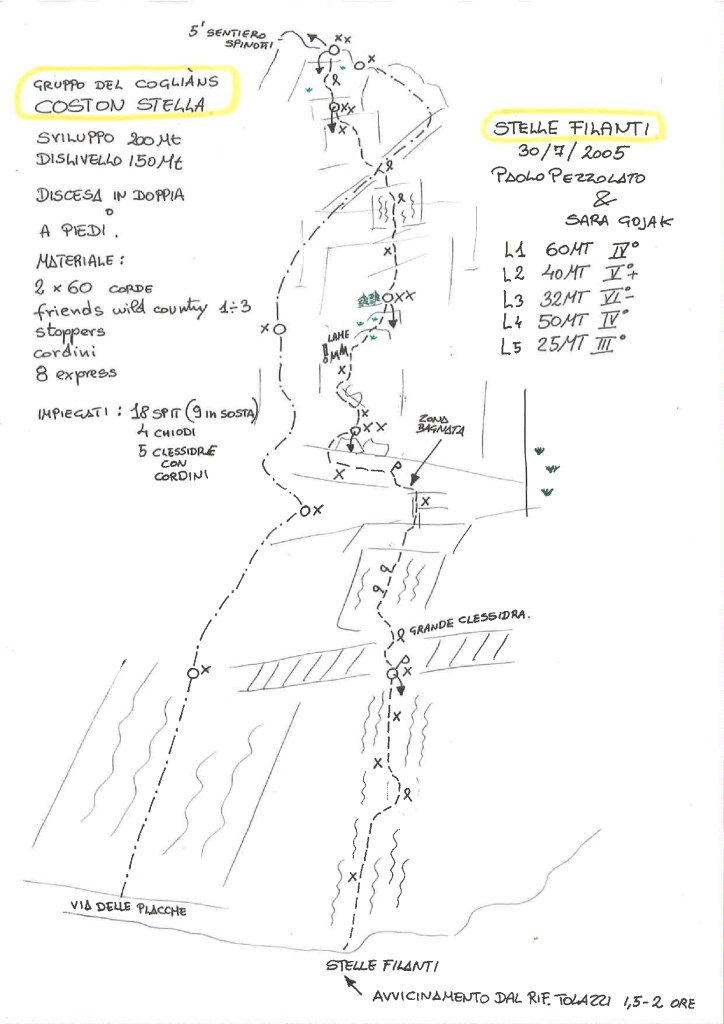 5' SENTIERO
SPINOTTI
GRUPPO DEL COGLIÀNS
COSTON STELLA
SVILUPPO 200 Mt
DISLIVELLO 150 Mt
DISCESA IN DOPPIA
O
A PIEDI.
MATERIALE:
2 × 60 CORDE
friends wild county 1÷3
stoppers
cordini
8 express
IMPIEGATI: 18 SPIT (9 IN SOSTA)
4 CHIODI
5 CLESSIDRE
CON
CORDINI
STELLE FILANTI
30/7/2005
PAOLO PEZZOLATO
&
SARA GOJAK
L1 60MT IV°
L2 40MT V°+
L3 32MT VI°-
L4 50MT IV°
L5 25MT III°
LAME
!
ZONA
BAGNATA
GRANDE CLESSIDRA.
VIA DELLE PLACCHE
STELLE FILANTI
AVVICINAMENTO DAL RIF. TOLAZZI 1,5-2 ORE